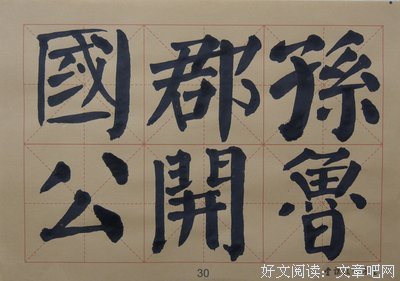 孫魯
郡開
國公
30
好文阅读：文章吧网